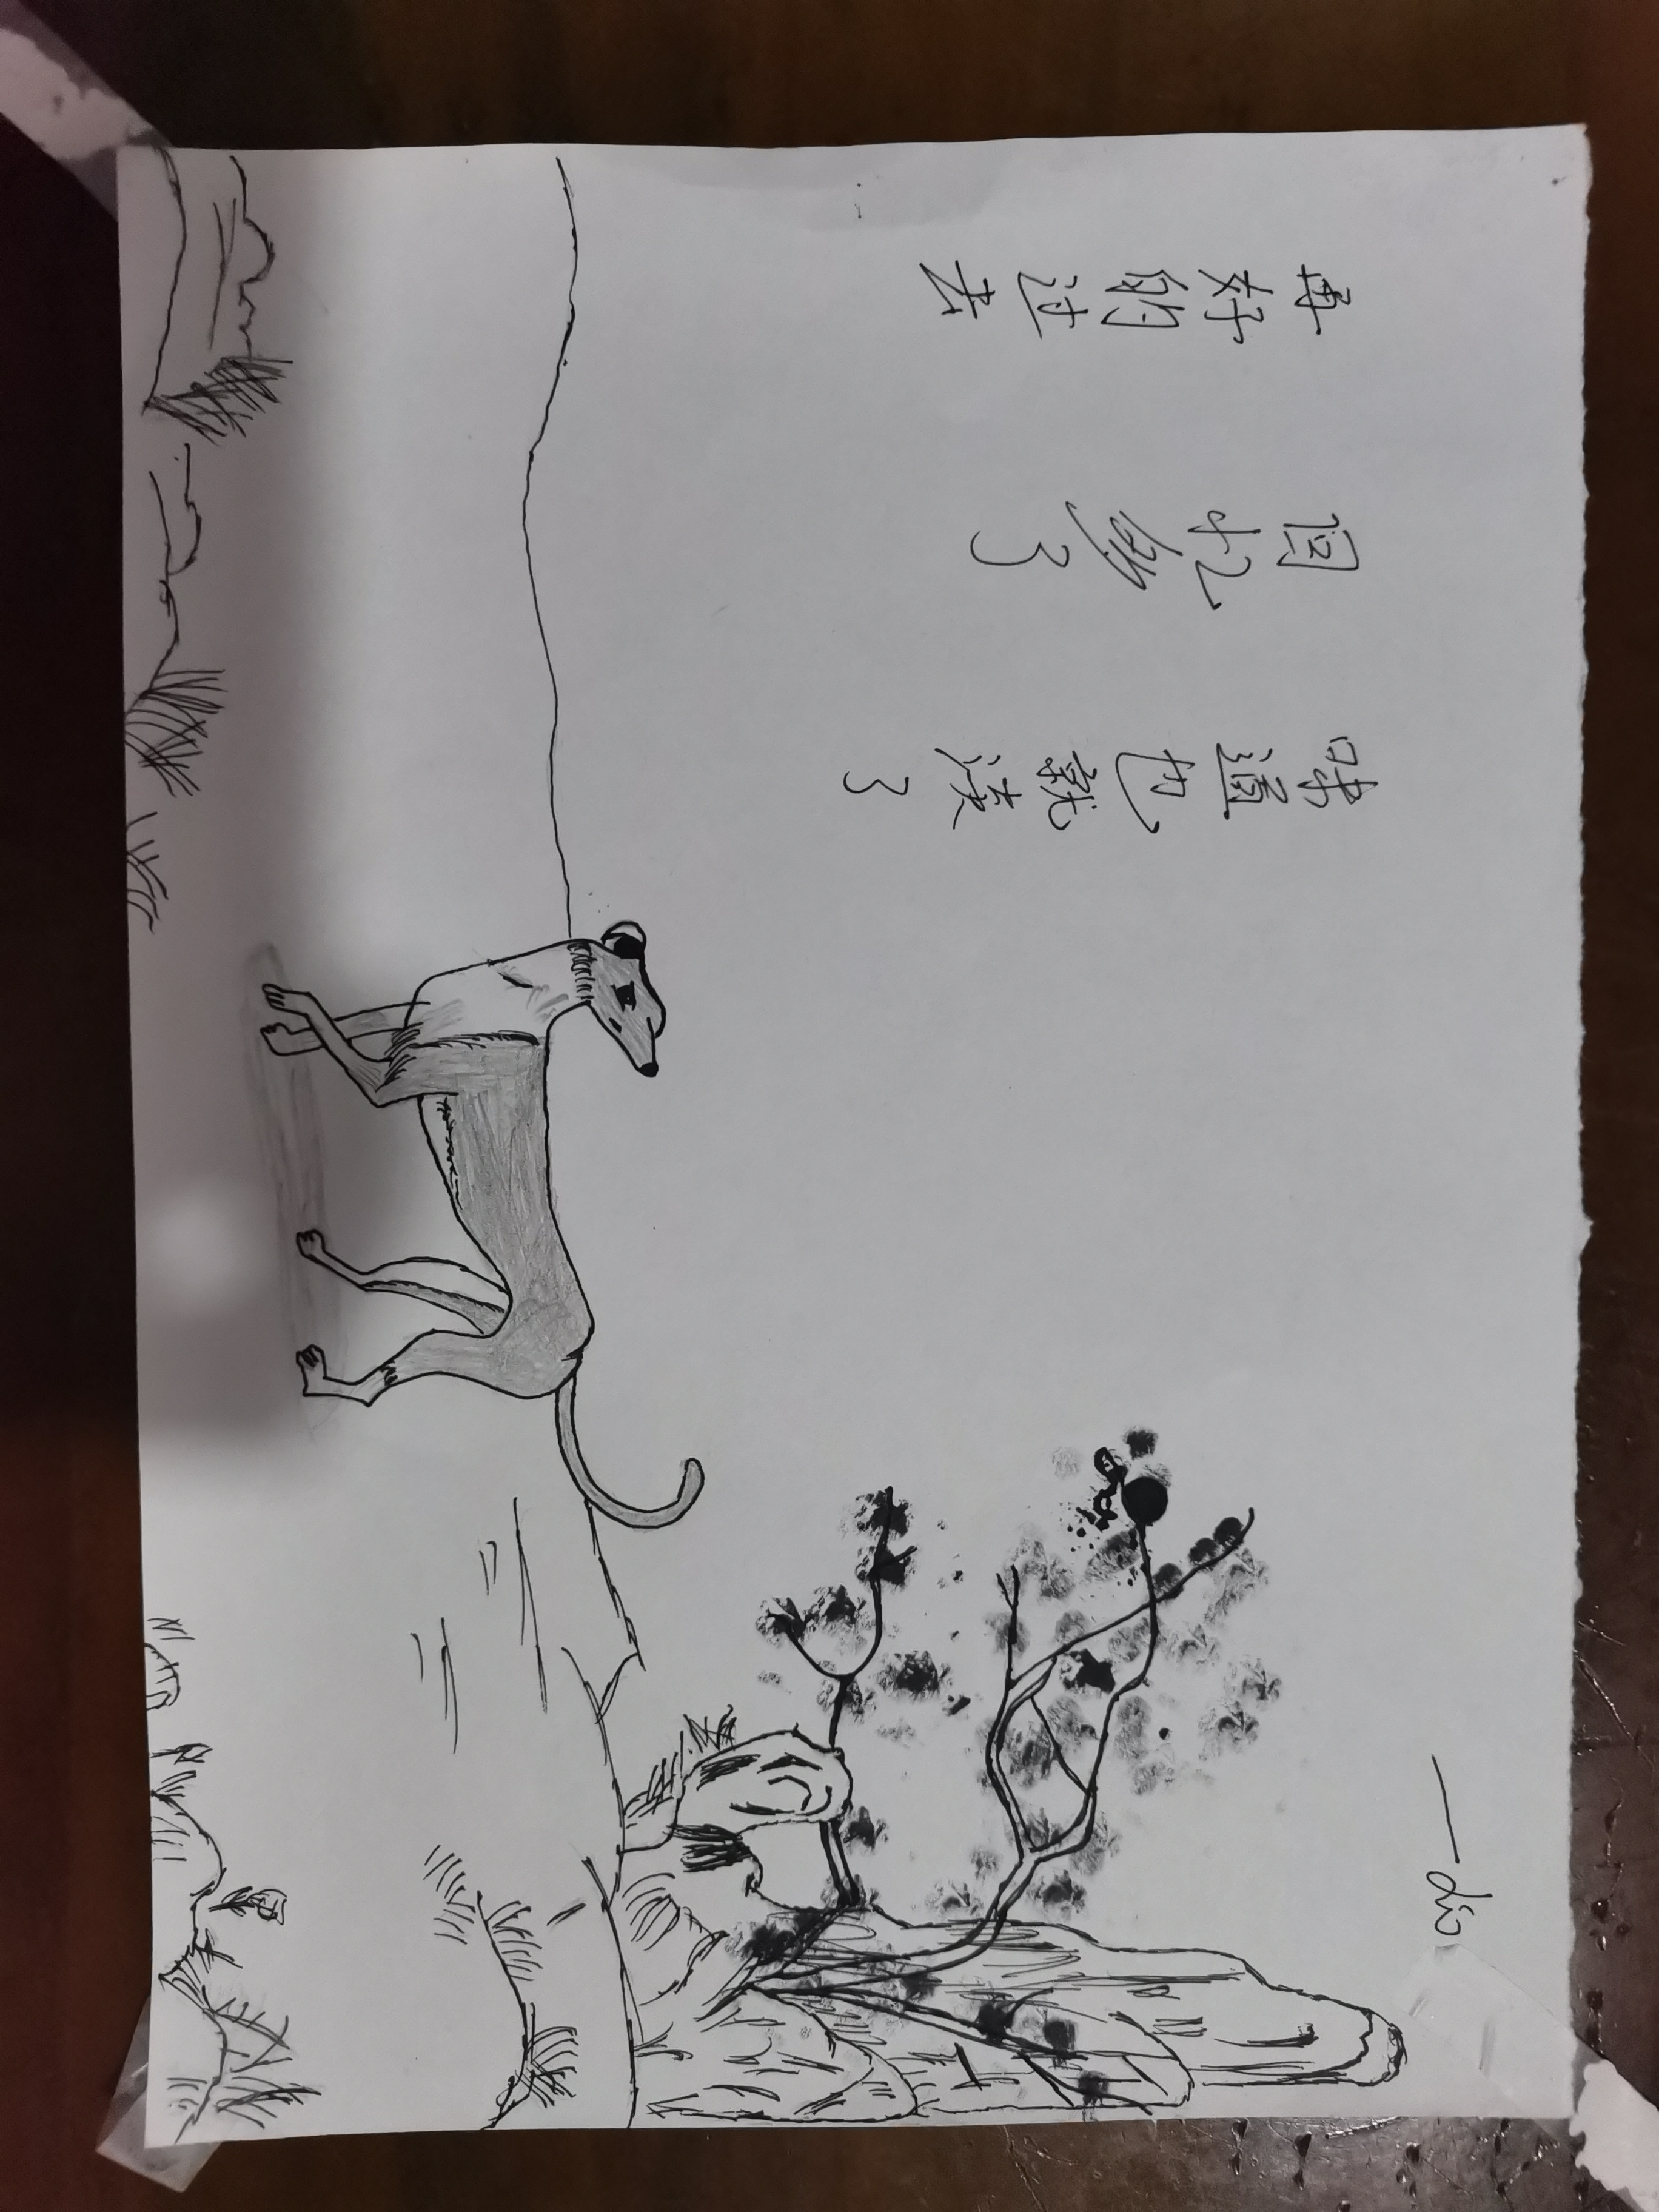 再好的过去
回忆多了
味道也就淡了
——dio